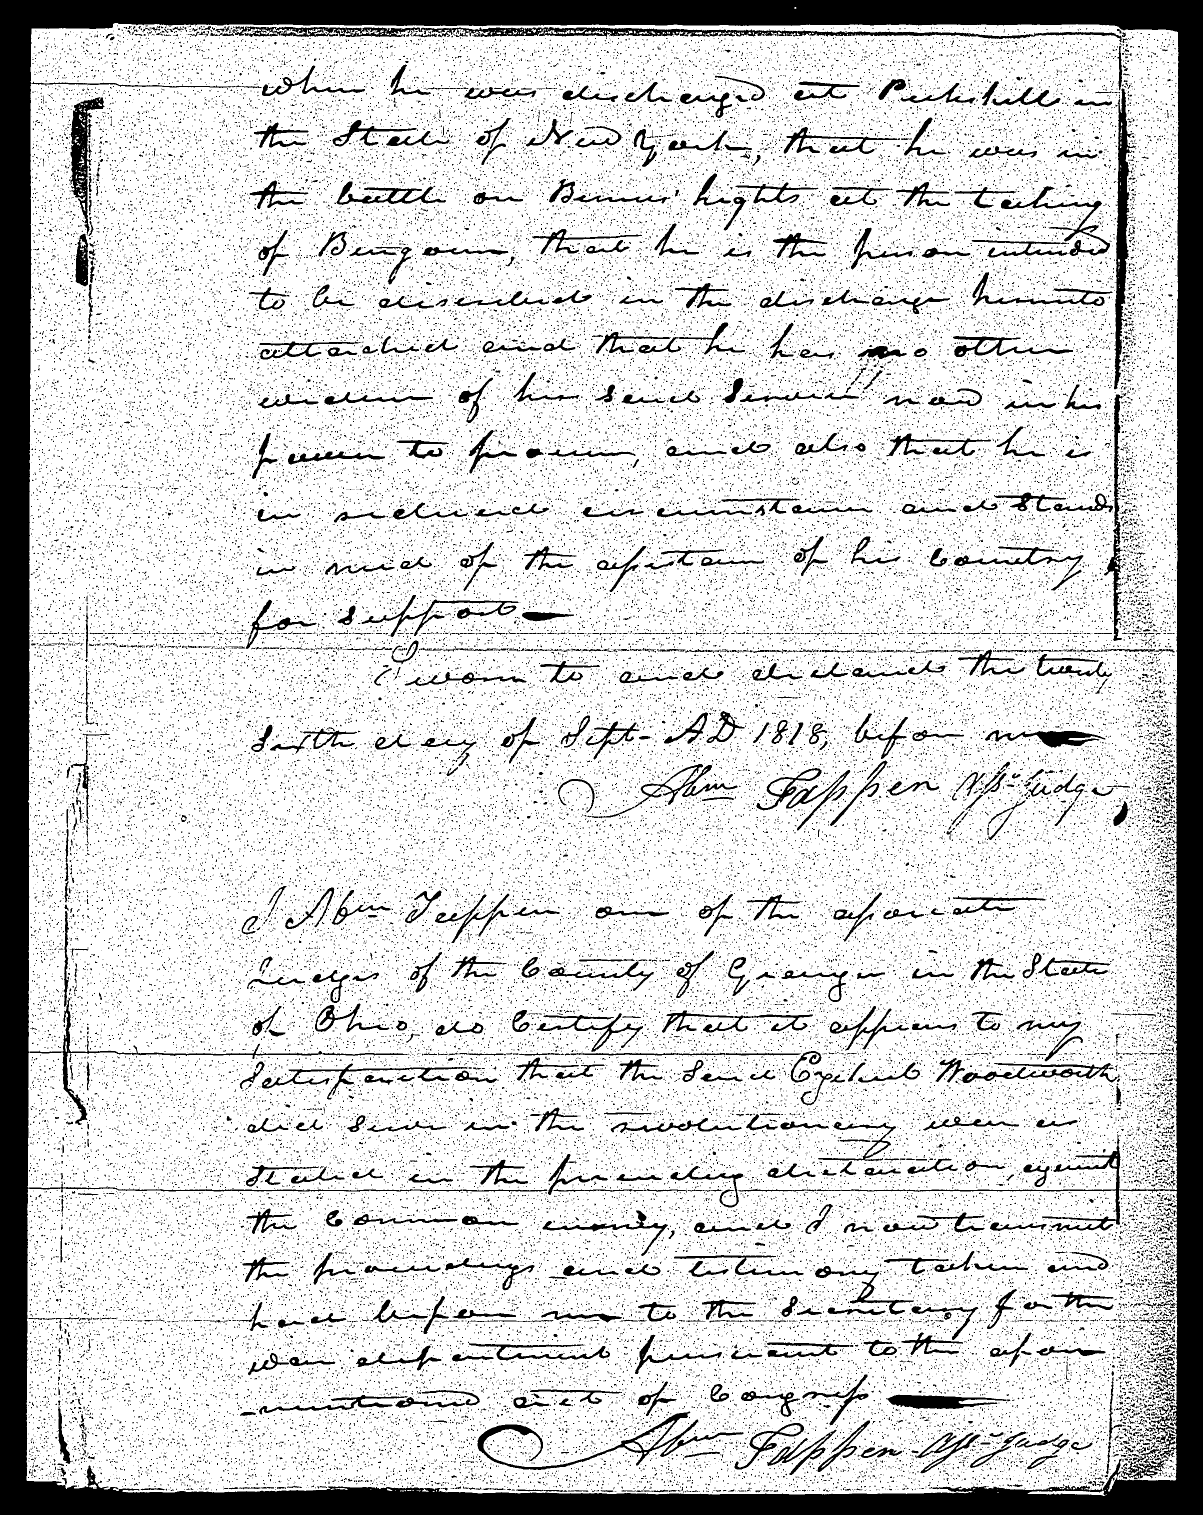 when he was discharged at Peekskill in
the State of New York, that he was in
the battle on Bemus' hights at the taking
of Burgoine, that he is the person intended
to be described in the discharge hereunto
attached and that he has no other
evidence of his said Service now in his
power to procure, and also that he is
in reduced circumstance and Stands
in need of the assistance of his Country
for Support
Sworn to and declared the twenty
Sixth day of Sept- AD 1818, before me
Abm Tappen Ass. Judge
I Abm Tappen one of the associate
Judges of the County of Geauga in the State
of Ohio, do Certify that it appears to my
Satisfaction that the Said Ezekiel Woodworth
did Serve in the revolutionary war as
Stated in the preceding declaration, against
the Common enemy, and I now transmit
the proceedings and testimony taken and
had before me to the Secretary for the
war department pursuant to the afore
-mentioned act of Congress
Abm Tappen - Ass- Judge